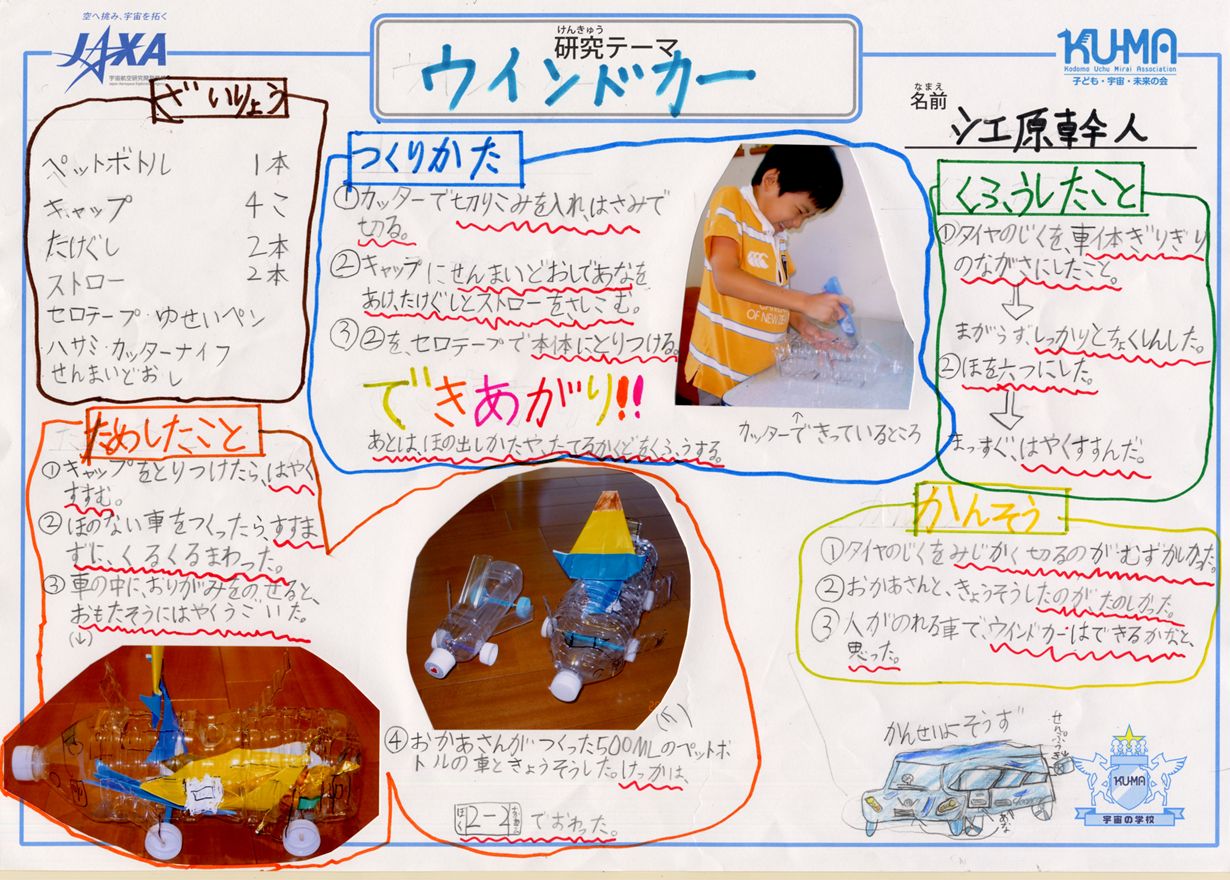 空へ挑み、宇宙を拓く
JAXA
宇宙航空研究開発機構
けんきゅう
研究テーマ
ウインドカー
KU-MA
Kodomo Uchu Mirai Association
子ども・宇宙・未来の会
なまえ
名前
江原幹人
ざいりょう
ペットボトル 1本
キャップ 4こ
たけぐし 2本
ストロー 2本
セロテープ・ゆせいペン
ハサミ・カッターナイフ
せんまいどおし
つくりかた
①カッターで切りこみを入れ、はさみで
切る。
②キャップにせんまいどおしであなを
あけ、たけぐしとストローをさしこむ。
③②を、セロテープで本体にとりつける。
できあがり!!
あとは、ほの出しかたや、たてるかくどをくふうする。
↑
カッターできっているところ
くふうしたこと
①タイヤのじくを、車体ぎりぎり
のながさにしたこと。
まがらず、しっかりとちょくしんした。
②ほを六つにした。
まっすぐ、はやくすすんだ。
ためしたこと
①キャップをとりつけたら、はやく
すすむ。
②ほのない車をつくったら、すすま
ずに、くるくるまわった。
③車の中に、おりがみをのせると、
おもたそうにはやくうごいた。
(↓)
(↑)
④おかあさんがつくった500MLのペットボ
トルの車ときょうそうした。けっかは、
ぼく 2-2 でおわった。
かんそう
①タイヤのじくをみじかく切るのがむずかしかった。
②おかあさんと、きょうそうしたのが、たのしかった。
③人がのれる車で、ウインドカーはできるかなと、
思った。
かんせいよそうず
せんぷうき
KU-MA
宇宙の学校